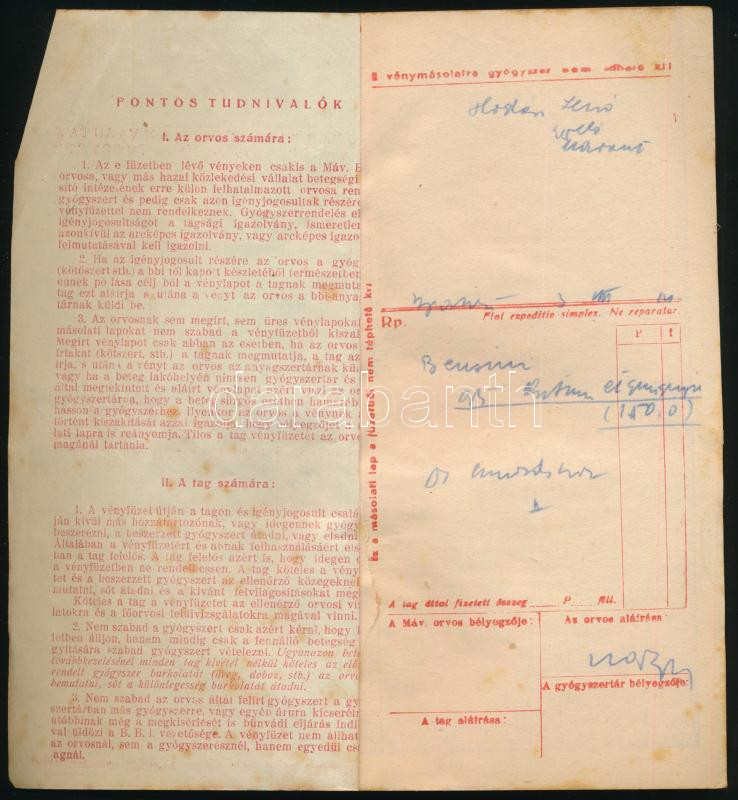 FONTOS TUDNIVALÓK
I. Az orvos számára:
1. Az e füzetben lévő vényeken csakis a Máv. B
orvosa, vagy más hazai közlekedési vállalat betegségi
sító intézetének erre külön felhatalmazott orvosa ren
gyógyszert és pedig csak azon igényjogosultak részére
vényfüzettel nem rendelkeznek. Gyógyszerrendelés el
igényjogosultságot a tagsági igazolvány, ismeretlen
azonkívül az arcképes igazolvány, vagy arcképes igazo
felmutatásával kell igazolni.
2. Ha az igényjogosult részére az orvos a gyóg
(kötőszert stb.) a bbi től kapott készletéből természetben
ennek pó lása célj ból a vénylapot a tagnak megmuta
tag ezt aláírja s utána a vényt az orvos a bbi-anya
tárnak küldi be.
3. Az orvosnak sem megírt, sem üres vénylapokat
másolati lapokat nem szabad a vényfüzetből kiszak
Megírt vénylapot csak abban az esetben, ha az orvos
írtakat (kötszert, stb.) a tagnak megmutatja, a tag az
írja, s utána a vényt az orvos az anyagszertárnak kül
vagy ha a beteg lakóhelyén nincsen gyógyszertár és
által megtekintett és aláírt vénylapot azért viszi az or
gyógyszertáron, hogy a beteg sürgős esetben hamaráb
hasson a gyógyszerhez. Ilyenkor az orvos a vénynek
történt kiszakítását azzal igazolja, hogy végzőjét a
lati lapra is reányomja. Tilos a tag vényfüzetét az orvo
magánál tartania.
II. A tag számára:
1. A vényfüzet útján a tagon és igényjogosult csalá
ján kívül más hozzátartozónak, vagy idegennek gyógy
beszerezni, a beszerzett gyógyszert átadni, vagy eladni
Általában a vényfüzetért és annak felhasználásáért els
ban a tag felelős. A tag felelős azért is, hogy idegen
a vényfüzetben ne rendelhessen. A tag köteles a vény
tet és a beszerzett gyógyszert az ellenőrző közegeknek
mutatni, sőt átadni és a kívánt felvilágosításokat meg
Köteles a tag a vényfüzetet az ellenőrző orvosi vi
latokra és a főorvosi felülvizsgálatokra magával vinni.
2. Nem szabad a gyógyszert csak azért kérni, hogy
letben álljon, hanem mindig csak a fennálló betegség
gyítására szabad gyógyszert vételezni. Ugyanazon bete
továbbkezelésénél minden tag kivétel nélkül köteles az elő
rendelt gyógyszer burkolatát (üveg, doboz, stb.) az orvo
bemutatni, sőt a különlegesség burkolatát átadni.
3. Nem szabad az orvos által felírt gyógyszert a gy
szertárban más gyógyszerre, vagy egyéb árura kicseréln
utóbbinak még a megkísérlését is bűnvádi eljárás indí
val üldözi a B. B. I. vezetősége. A vényfüzet nem állhat
az orvosnál, sem a gyógyszerésznél, hanem egyedül cs
agnál.
vénymásolatra gyógyszer nem adható ki!
Ez a másolati lap a füzetből nem téphető ki!
Rp. Fiat expeditio simplex. Ne reparatur.
P f
Benzini
(150,0)
A tag által fizetett összeg P fill.
A Máv. orvos bélyegzője: Az orvos aláírása:
A gyógyszertár bélyegzője:
A tag aláírása:
darabanth